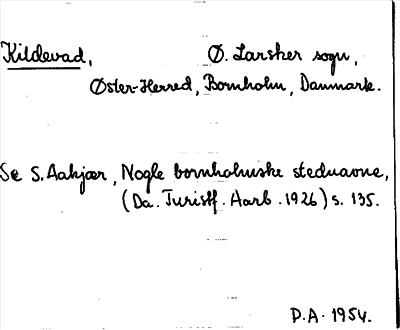 Kildevad, Ø. Larsker sogn,
Øster-Herred, Bornholm, Danmark.
Se S. Aakjær, Nogle bornholmske stednavne,
(Da. Turistf. Aarb. 1926) s. 135.
P.A. 1954.